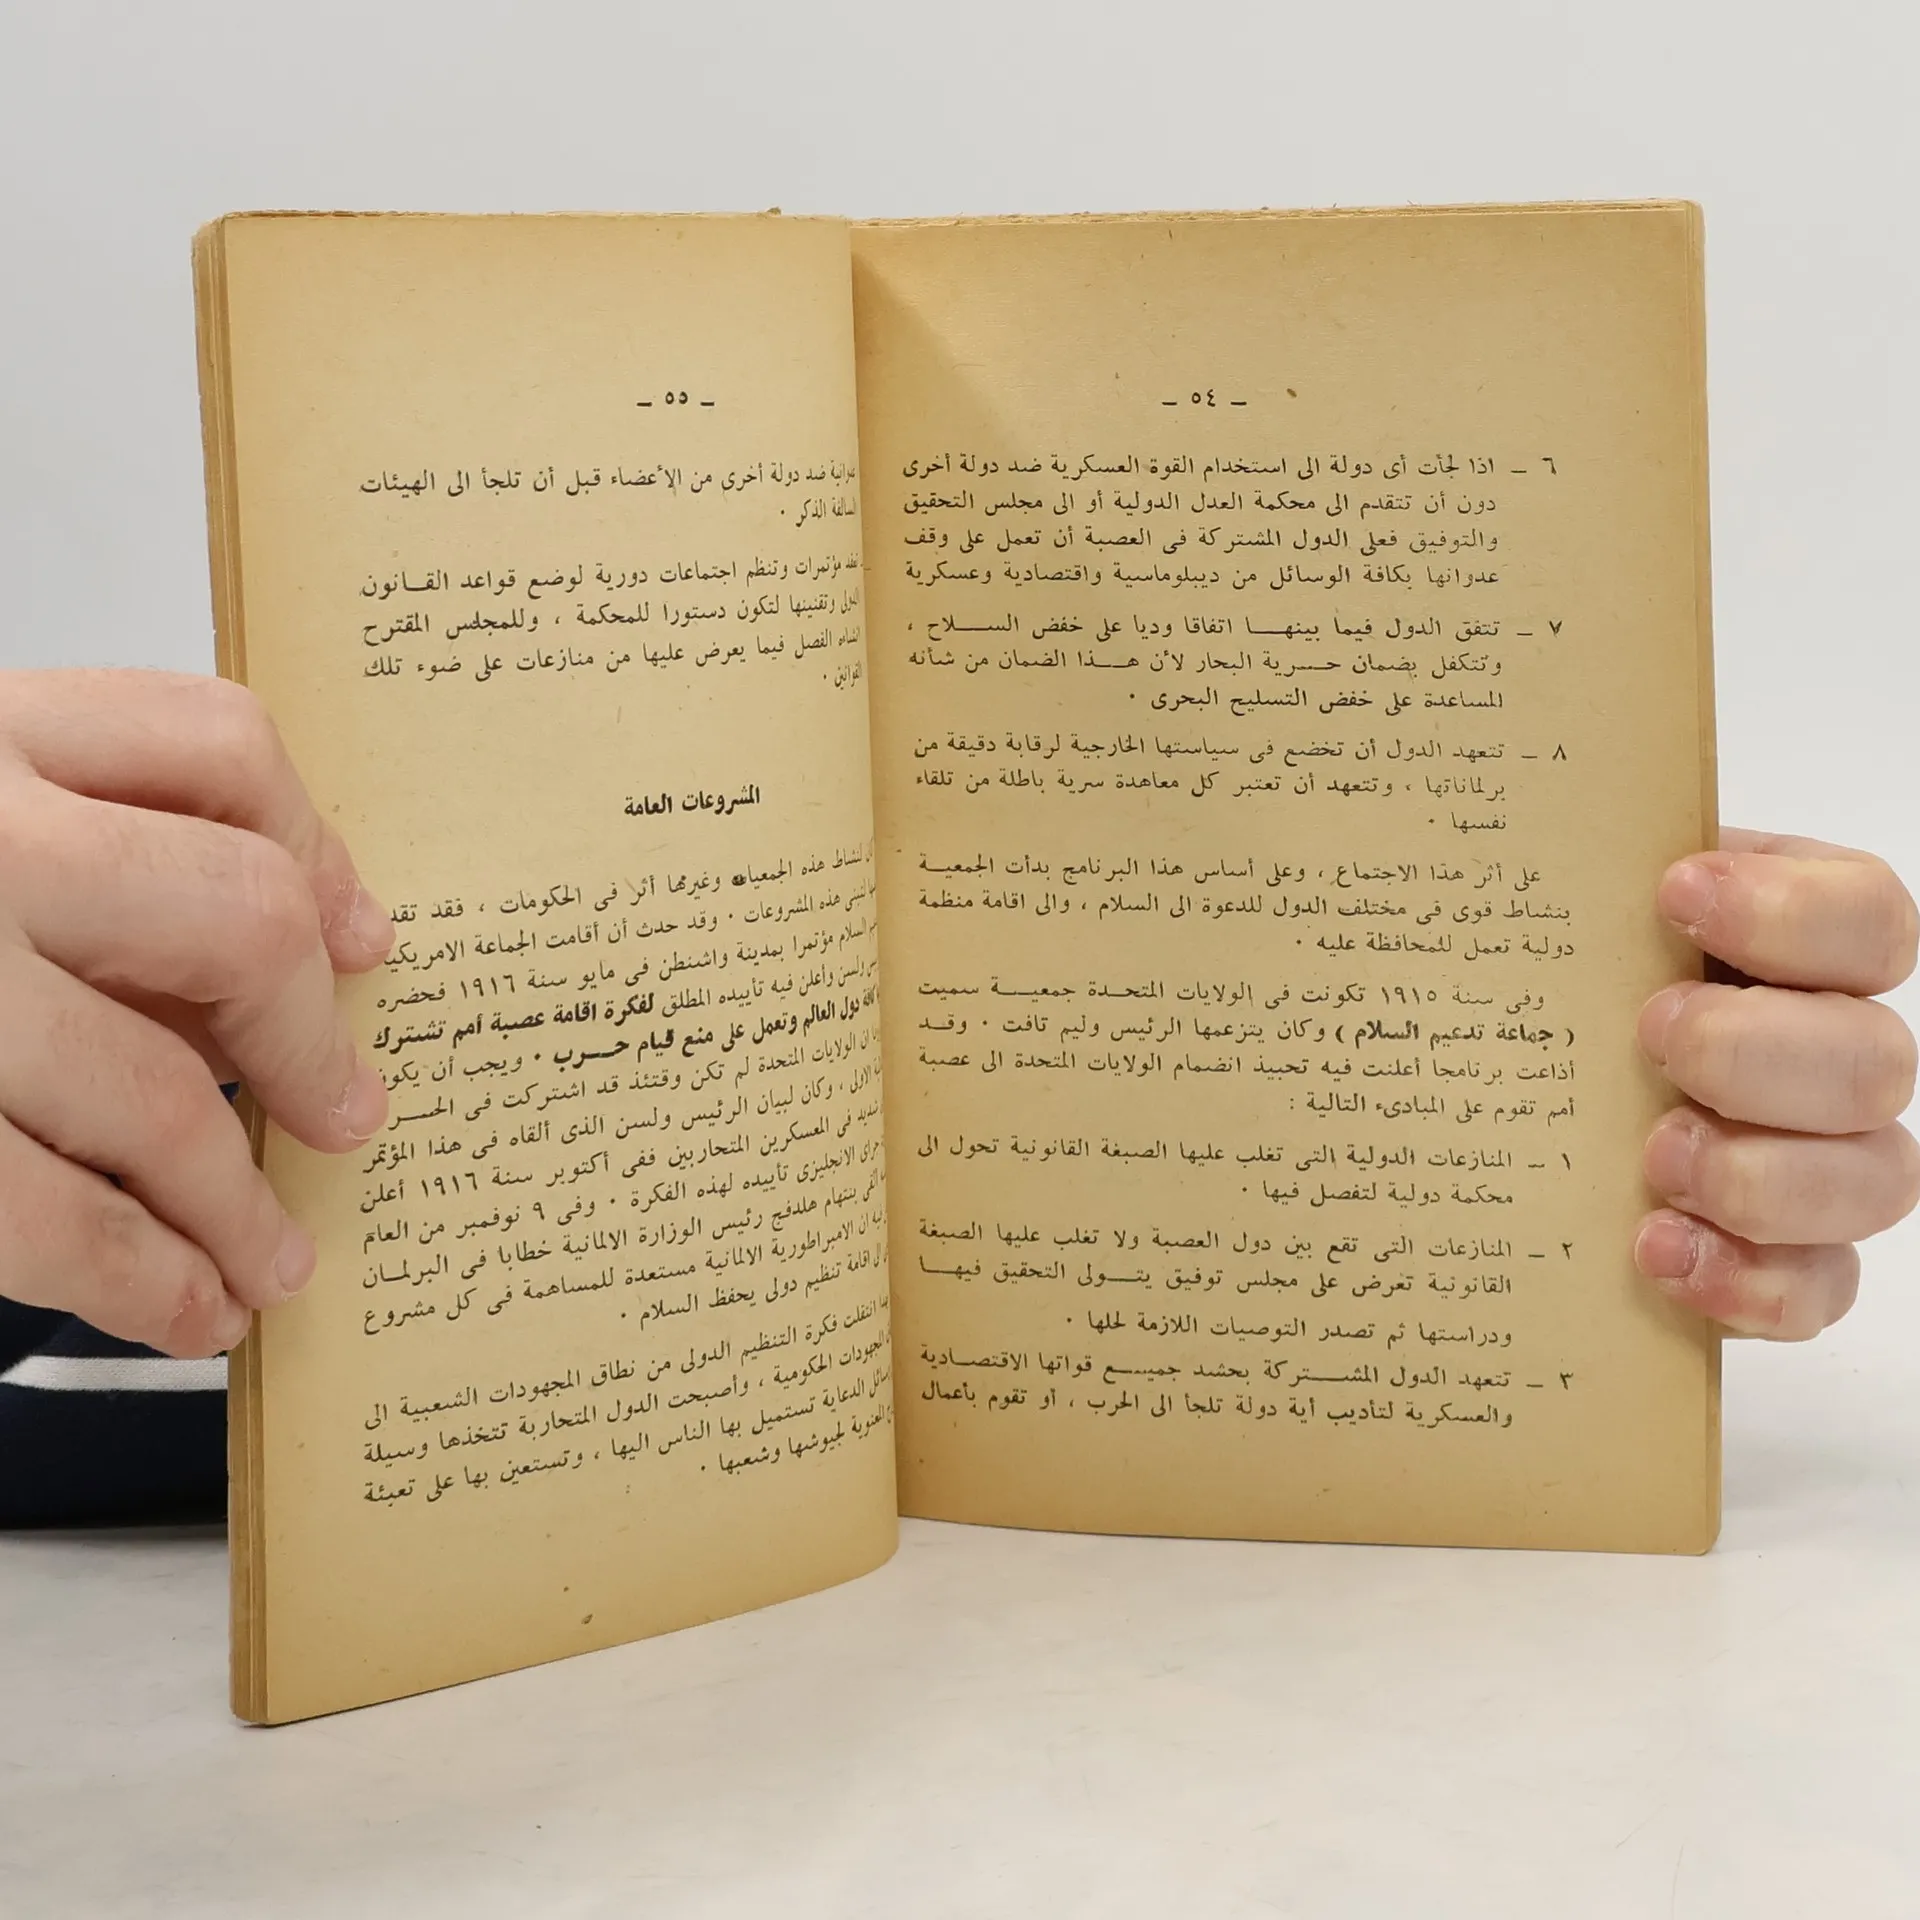 — ٥٤ —
٦ — اذا لجأت أى دولة الى استخدام القوة العسكرية ضد دولة أخرى
دون أن تتقدم الى محكمة العدل الدولية أو الى مجلس التحقيق
والتوفيق فعلى الدول المشتركة فى العصبة أن تعمل على وقف
عدوانها بكافة الوسائل من ديبلوماسية واقتصادية وعسكرية
٧ — تتفق الدول فيما بينهـــا اتفاقا وديا على خفض الســـلاح ،
وتتكفل بضمان حـــرية البحار لأن هـــذا الضمان من شأنه
المساعدة على خفض التسليح البحرى ٠
٨ — تتعهد الدول أن تخضع فى سياستها الخارجية لرقابة دقيقة من
برلماناتها ، وتتعهد أن تعتبر كل معاهدة سرية باطلة من تلقاء
نفسها ٠
على أثر هذا الاجتماع ، وعلى أساس هذا البرنامج بدأت الجمعيــة
بنشاط قوى فى مختلف الدول للدعوة الى السلام ، والى اقامة منظمة
دولية تعمل للمحافظة عليه ٠
وفى سنة ١٩١٥ تكونت فى الولايات المتحدة جمعيـــة سميت
( جماعة تدعيم السلام ) وكان يتزعمها الرئيس وليم تافت ٠ وقــد
أذاعت برنامجا أعلنت فيه تحبيذ انضمام الولايات المتحدة الى عصبة
أمم تقوم على المبادىء التالية :
١ — المنازعات الدولية التى تغلب عليها الصبغة القانونية تحول الى
محكمة دولية لتفصل فيها ٠
٢ — المنازعات التى تقع بين دول العصبة ولا تغلب عليها الصبغة
القانونية تعرض على مجلس توفيق يتـــولى التحقيق فيهــا
ودراستها ثم تصدر التوصيات اللازمة لحلها ٠
٣ — تتعهد الدول المشـــتركة بحشد جميـــع قواتها الاقتصـادية
والعسكرية لتأديب أية دولة تلجأ الى الحرب ، أو تقوم بأعمال
— ٥٥ —
ضد دولة أخرى من الأعضاء قبل أن تلجأ الى الهيئات
السالفة الذكر ٠
مؤتمرات وتنظم اجتماعات دورية لوضع قواعد القــانون
وتقنينها لتكون دستورا للمحكمة ، وللمجلس المقترح
الفصل فيما يعرض عليها من منازعات على ضوء تلك
القوانين ٠
المشروعات العامة
لنشاط هذه الجمعيات وغيرها أثر فى الحكومات ، فقد
لتبنى هذه المشروعات ٠ وقد حدث أن أقامت الجماعة
السلام مؤتمرا بمدينة واشنطن فى مايو سنة ١٩١٦ فحضره
ولسن وأعلن فيه تأييده المطلق لفكرة اقامة عصبة أمم تشترك
كافة دول العالم وتعمل على منع قيام حـــرب ٠ ويجب أن
ان الولايات المتحدة لم تكن وقتئذ قد اشتركت فى
الاولى ، وكان لبيان الرئيس ولسن الذى ألقاه فى هذا المؤتمر
شديد فى المعسكرين المتحاربين ففى أكتوبر سنة ١٩١٦ أعلن
جراى الانجليزى تأييده لهذه الفكرة ٠ وفى ٩ نوفمبر من العام
ألقى بنتهام هلدفج رئيس الوزارة الالمانية خطابا فى البرلمــان
فيه ان الامبراطورية الالمانية مستعدة للمساهمة فى كل مشروع
الى اقامة تنظيم دولى يحفظ السلام ٠
انتقلت فكرة التنظيم الدولى من نطاق المجهودات الشعبية الى
المجهودات الحكومية ، وأصبحت الدول المتحاربة تتخذها وسيلة
وسائل الدعاية تستميل بها الناس اليها ، وتستعين بها على تعبئة
المعنوية لجيوشها وشعبها ٠